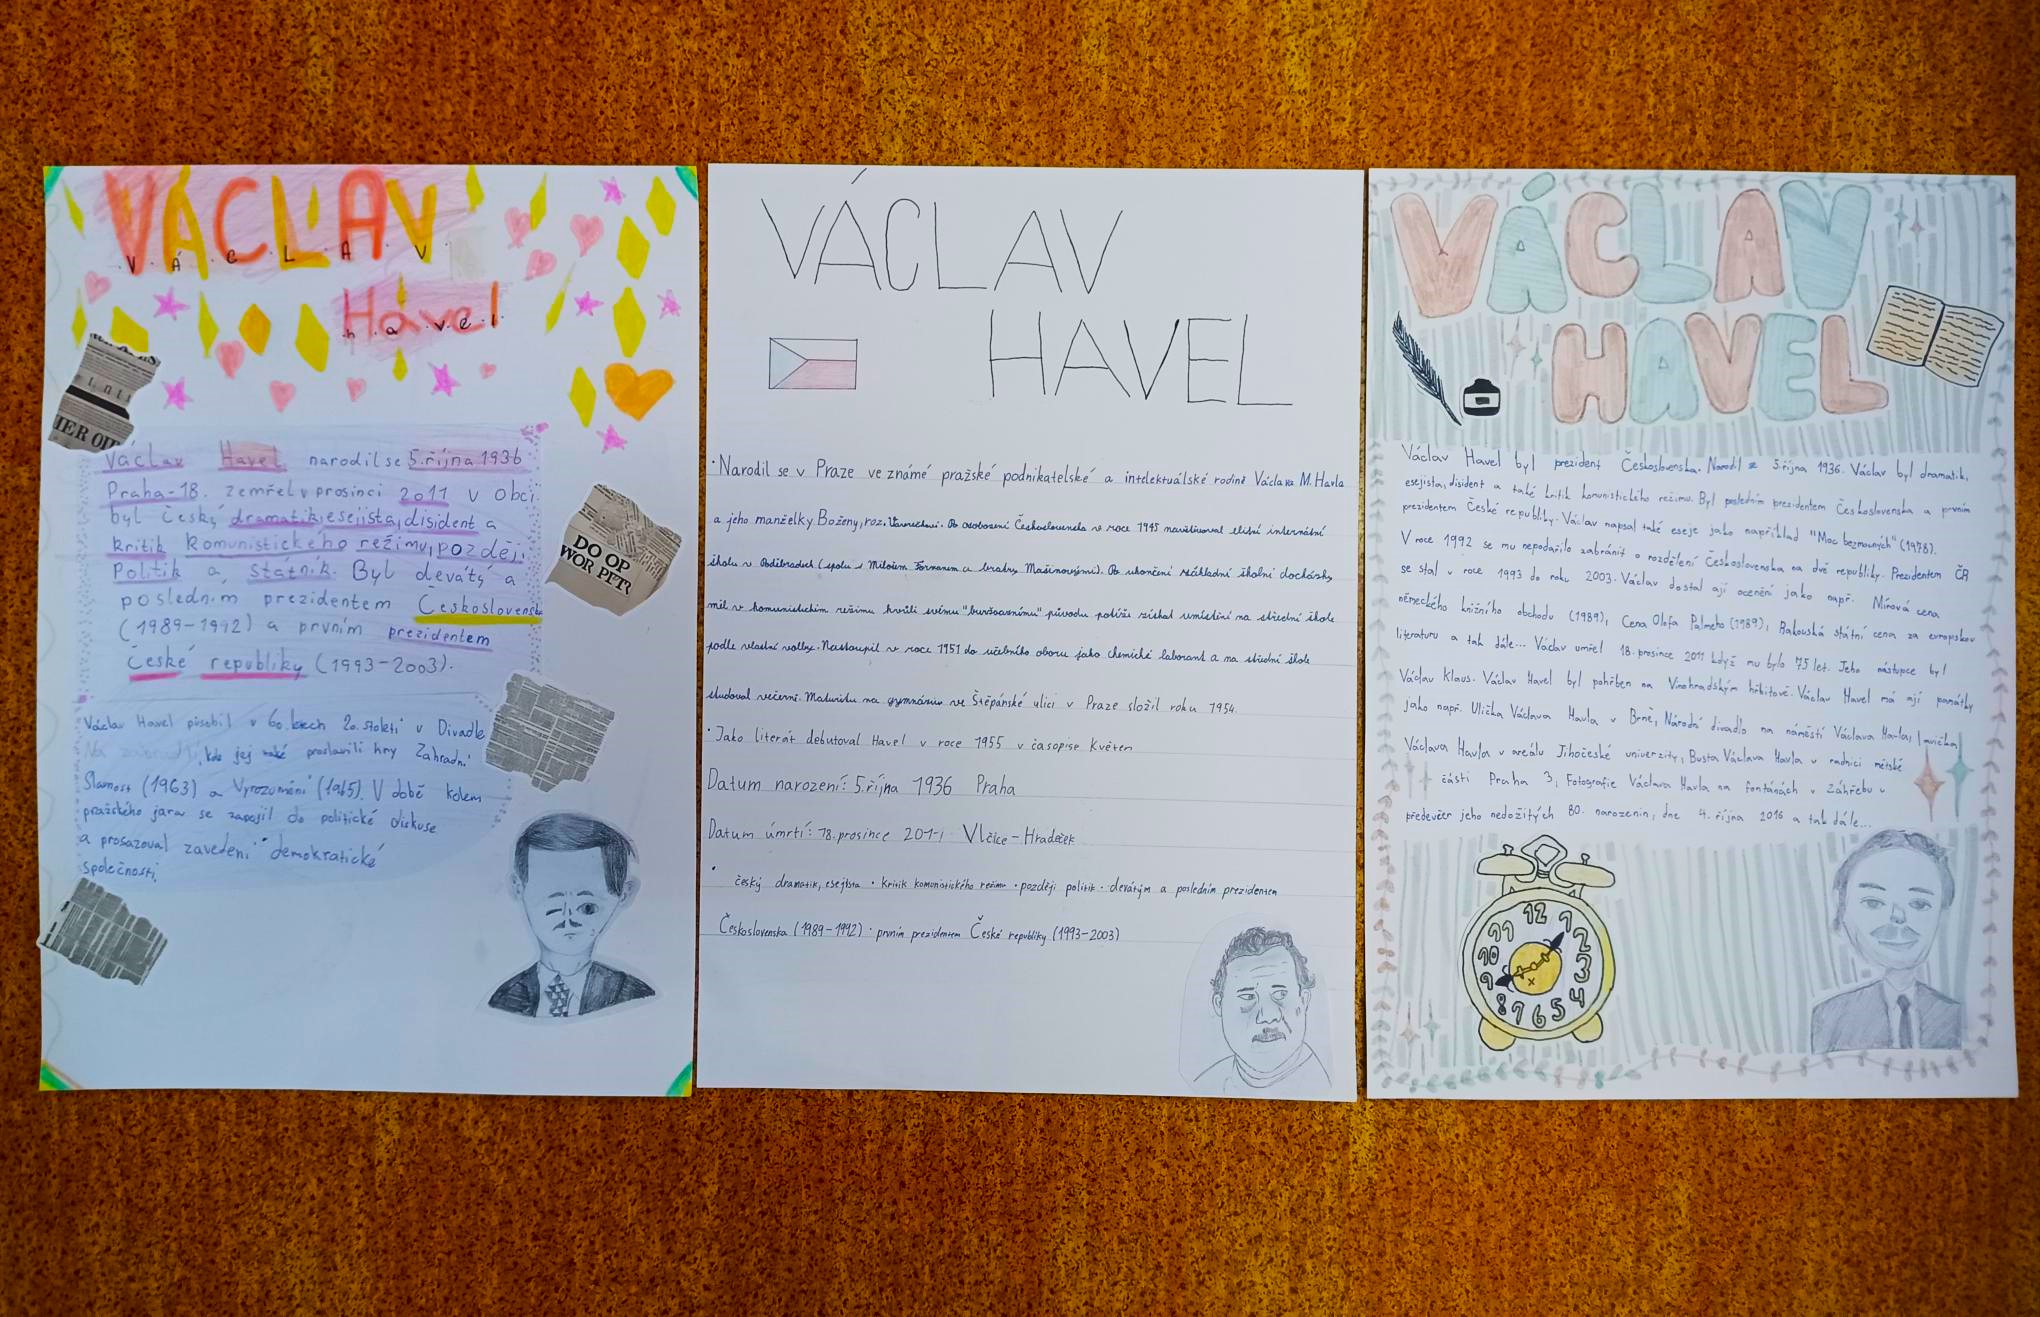 VÁCLAV
V Á C L A V
Havel
h a v e l
IER OF
DO OP
WOR PFTR
Václav Havel narodil se 5.října 1936
Praha-18. zemřel v prosinci 2011 v obci
byl český dramatik, esejista, disident a
kritik komunistického režimu, později
Politik a státník. Byl devátý a
posledním prezidentem Československ
(1989-1992) a prvním prezidentem
České republiky (1993-2003).
Václav Havel působil v 60. letech 20. století v Divadle
Na zábradlí, kde jej také proslavili hry Zahradní
Slavnost (1963) a Vyrozumění (1965). V době kolem
pražského jara se zapojil do politické diskuse
a prosazoval zavedení demokratické
společnosti.
VÁCLAV
HAVEL
· Narodil se v Praze ve známé pražské podnikatelské a intelektuálské rodině Václava M. Havla
a jeho manželky Boženy, roz. Po osvobození Československa v roce 1945 navštěvoval elitní internátní
školu v Poděbradech (spolu s Milošem Formanem a bratry Mašínovými). Po ukončení základní školní docházky
měl v komunistickém režimu kvůli svému "buržoaznímu" původu potíže získat umístění na střední škole
podle vlastní volby. Nastoupil v roce 1951 do učebního oboru jako chemické laborant a na střední škole
studoval večerně. Maturitu na gymnáziu ve Štěpánské ulici v Praze složil roku 1954.
· Jako literát debutoval Havel v roce 1955 v časopise Květen
Datum narození: 5.října 1936 Praha
Datum úmrtí: 18. prosince 2011 Vlčice-Hrádeček
· český dramatik, esejista · kritik komunistického režimu · později politik · devátým a posledním prezidentem
Československa (1989-1992) · prvním prezidentem České republiky (1993-2003)
VÁCLAV
HAVEL
Václav Havel byl prezident Československa. Narodil se 5.října 1936. Václav byl dramatik,
esejista, disident a také kritik komunistického režimu. Byl posledním prezidentem Československa a prvním
prezidentem České republiky. Václav napsal také eseje jako například "Moc bezmocných" (1978).
V roce 1992 se mu nepodařilo zabránit o rozdělení Československa na dvě republiky. Prezidentem ČR
se stal v roce 1993 do roku 2003. Václav dostal ají ocenění jako např. Mírová cena
německého knižního obchodu (1989), Cena Olofa Palmeho (1989), Rakouská státní cena za evropskou
literaturu a tak dále... Václav umřel 18. prosince 2011 když mu bylo 75 let. Jeho nástupce byl
Václav Klaus. Václav Havel byl pohřben na Vinohradským hřbitově. Václav Havel má ají památky
jako např. Ulička Václava Havla v Brně, Národní divadlo na náměstí Václava Havla, lavička
Václava Havla v areálu Jihočeské univerzity, Busta Václava Havla v radnici městské
části Praha 3, Fotografie Václava Havla na fontánách v Záhřebu v
předvečer jeho nedožitých 80. narozenin, dne 4. října 2016 a tak dále...
12
11 1
10 2
9 3
8 4
7 6 5